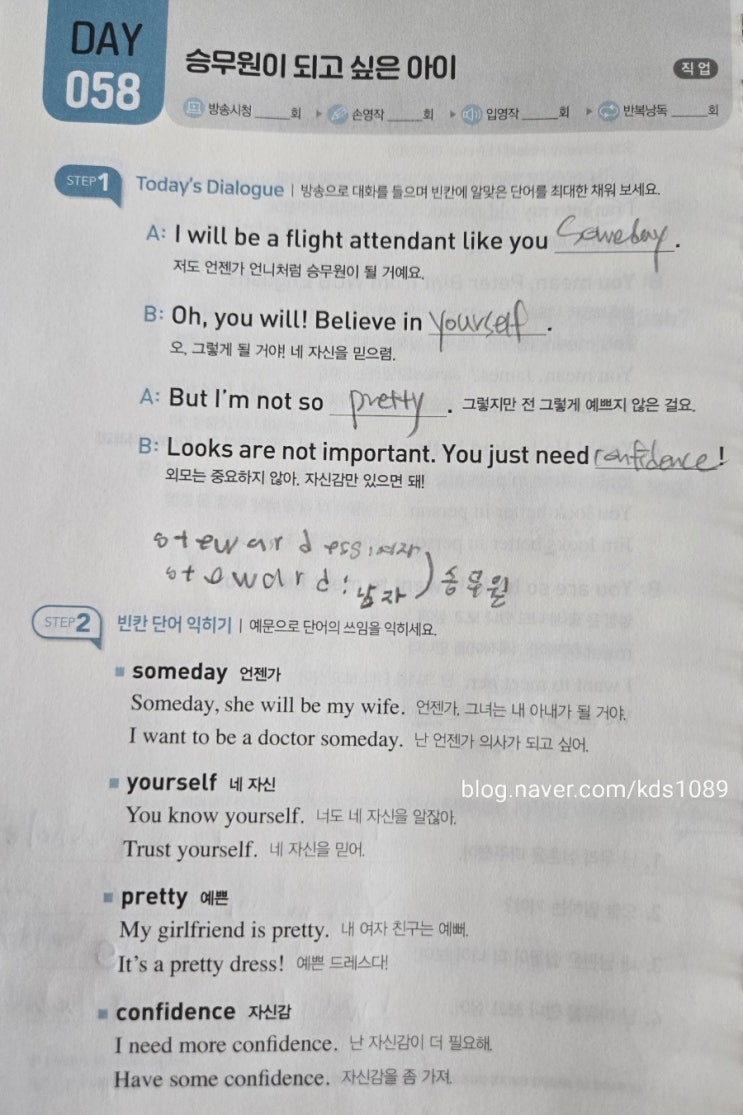 DAY
058
승무원이 되고 싶은 아이
직업
방송시청 _____회 ▶ 손영작 _____회 ▶ 입영작 _____회 ▶ 반복낭독 _____회
STEP 1 Today's Dialogue | 방송으로 대화를 들으며 빈칸에 알맞은 단어를 최대한 채워 보세요.
A: I will be a flight attendant like you someday.
저도 언젠가 언니처럼 승무원이 될 거예요.
B: Oh, you will! Believe in yourself.
오, 그렇게 될 거야! 네 자신을 믿으렴.
A: But I'm not so pretty. 그렇지만 전 그렇게 예쁘지 않은 걸요.
B: Looks are not important. You just need confidence!
외모는 중요하지 않아. 자신감만 있으면 돼!
stewardess: 여자
steward: 남자 ) 승무원
STEP 2 빈칸 단어 익히기 | 예문으로 단어의 쓰임을 익히세요.
■ someday 언젠가
Someday, she will be my wife. 언젠가, 그녀는 내 아내가 될 거야.
I want to be a doctor someday. 난 언젠가 의사가 되고 싶어.
blog.naver.com/kds1089
■ yourself 네 자신
You know yourself. 너도 네 자신을 알잖아.
Trust yourself. 네 자신을 믿어.
■ pretty 예쁜
My girlfriend is pretty. 내 여자 친구는 예뻐.
It's a pretty dress! 예쁜 드레스다!
■ confidence 자신감
I need more confidence. 난 자신감이 더 필요해.
Have some confidence. 자신감을 좀 가져.